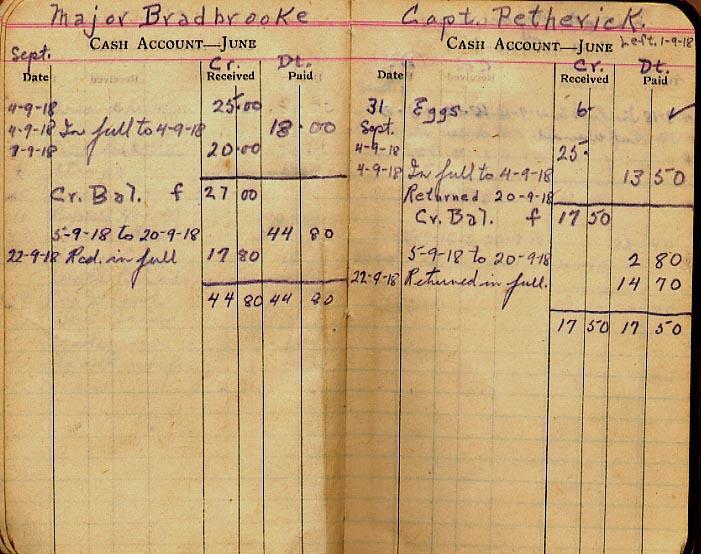 Major Bradbrooke
CASH ACCOUNT—JUNE
Sept. Cr. Dt.
Date Received Paid
4-9-18 25.00
4-9-18 In full to 4-9-18 18.00
9-9-18 20.00
Cr. Bal. f 27 00
5-9-18 to 20-9-18 44 80
22-9-18 Red. in full 17 80
44 80 44 80
Capt. Petherick.
CASH ACCOUNT—JUNE Left. 1-9-18
Cr. Dt.
Date Received Paid
31 Eggs 6- ✓
Sept.
4-9-18 25-
4-9-18 In full to 4-9-18 13 50
Returned 20-9-18
Cr. Bal. f 17 50
5-9-18 to 20-9-18 2 80
22-9-18 Returned in full. 14 70
17 50 17 50